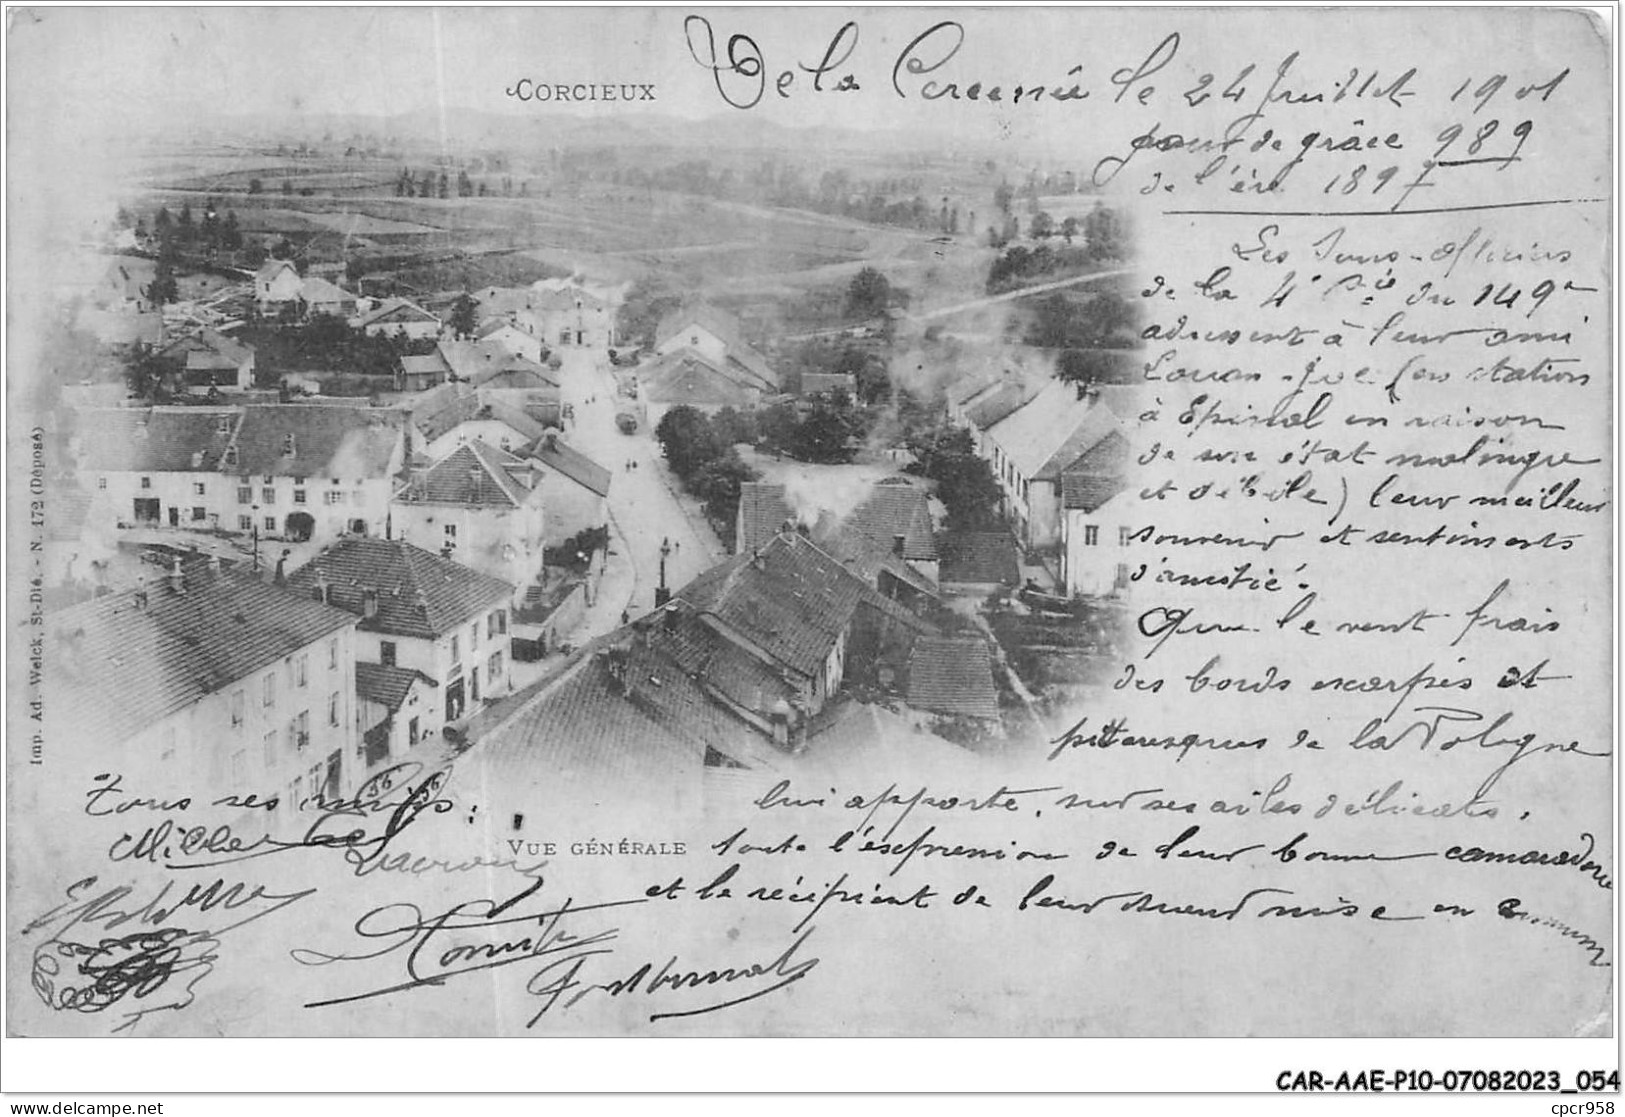 CORCIEUX
De la le 24 Juillet 1901
jour de grâce 989
de l'ère 1897
Les Sous-officiers
de la 4e Cie du 149e
adressent à leur ami
(en station
à Epinal en raison
de son état malingre
et débile) leur meilleur
souvenir et sentiments
d'amitié.
Que le vent frais
des bords escarpés et
pittoresques de la Pologne
lui apporte, sur ses ailes délicates,
toute l'expression de leur bonne camaraderie
et le récipient de leur sueur mise en commun
Tous ses amis :
VUE GÉNÉRALE
Imp. Ad. Weick, St-Dié. - N. 172 (Déposé)
CAR-AAE-P10-07082023_054
delcampe.net
cpcr958